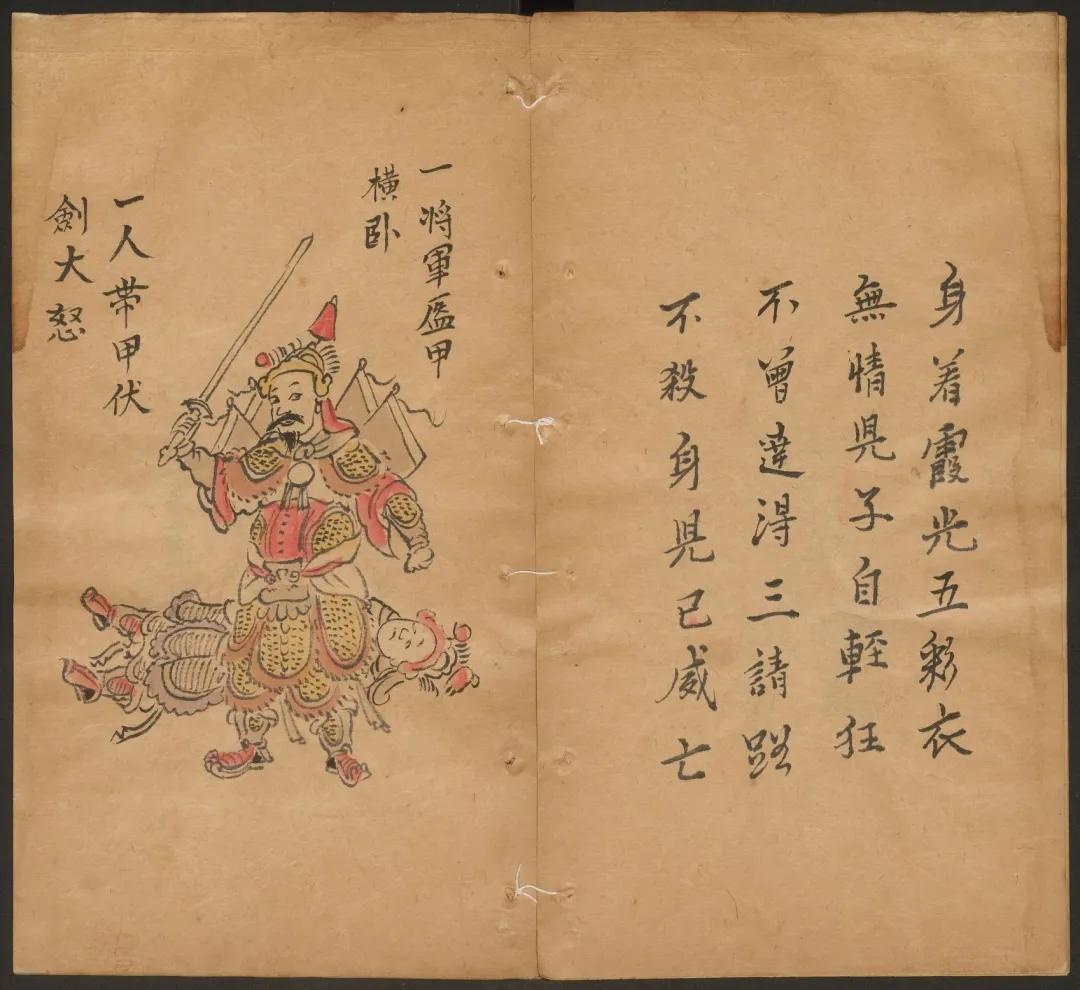 身着霞光五彩衣
無情児子自輕狂
不曾達得三請路
不殺身児已威亡
一将軍盔甲
橫卧
一人帯甲伏
劍大怒